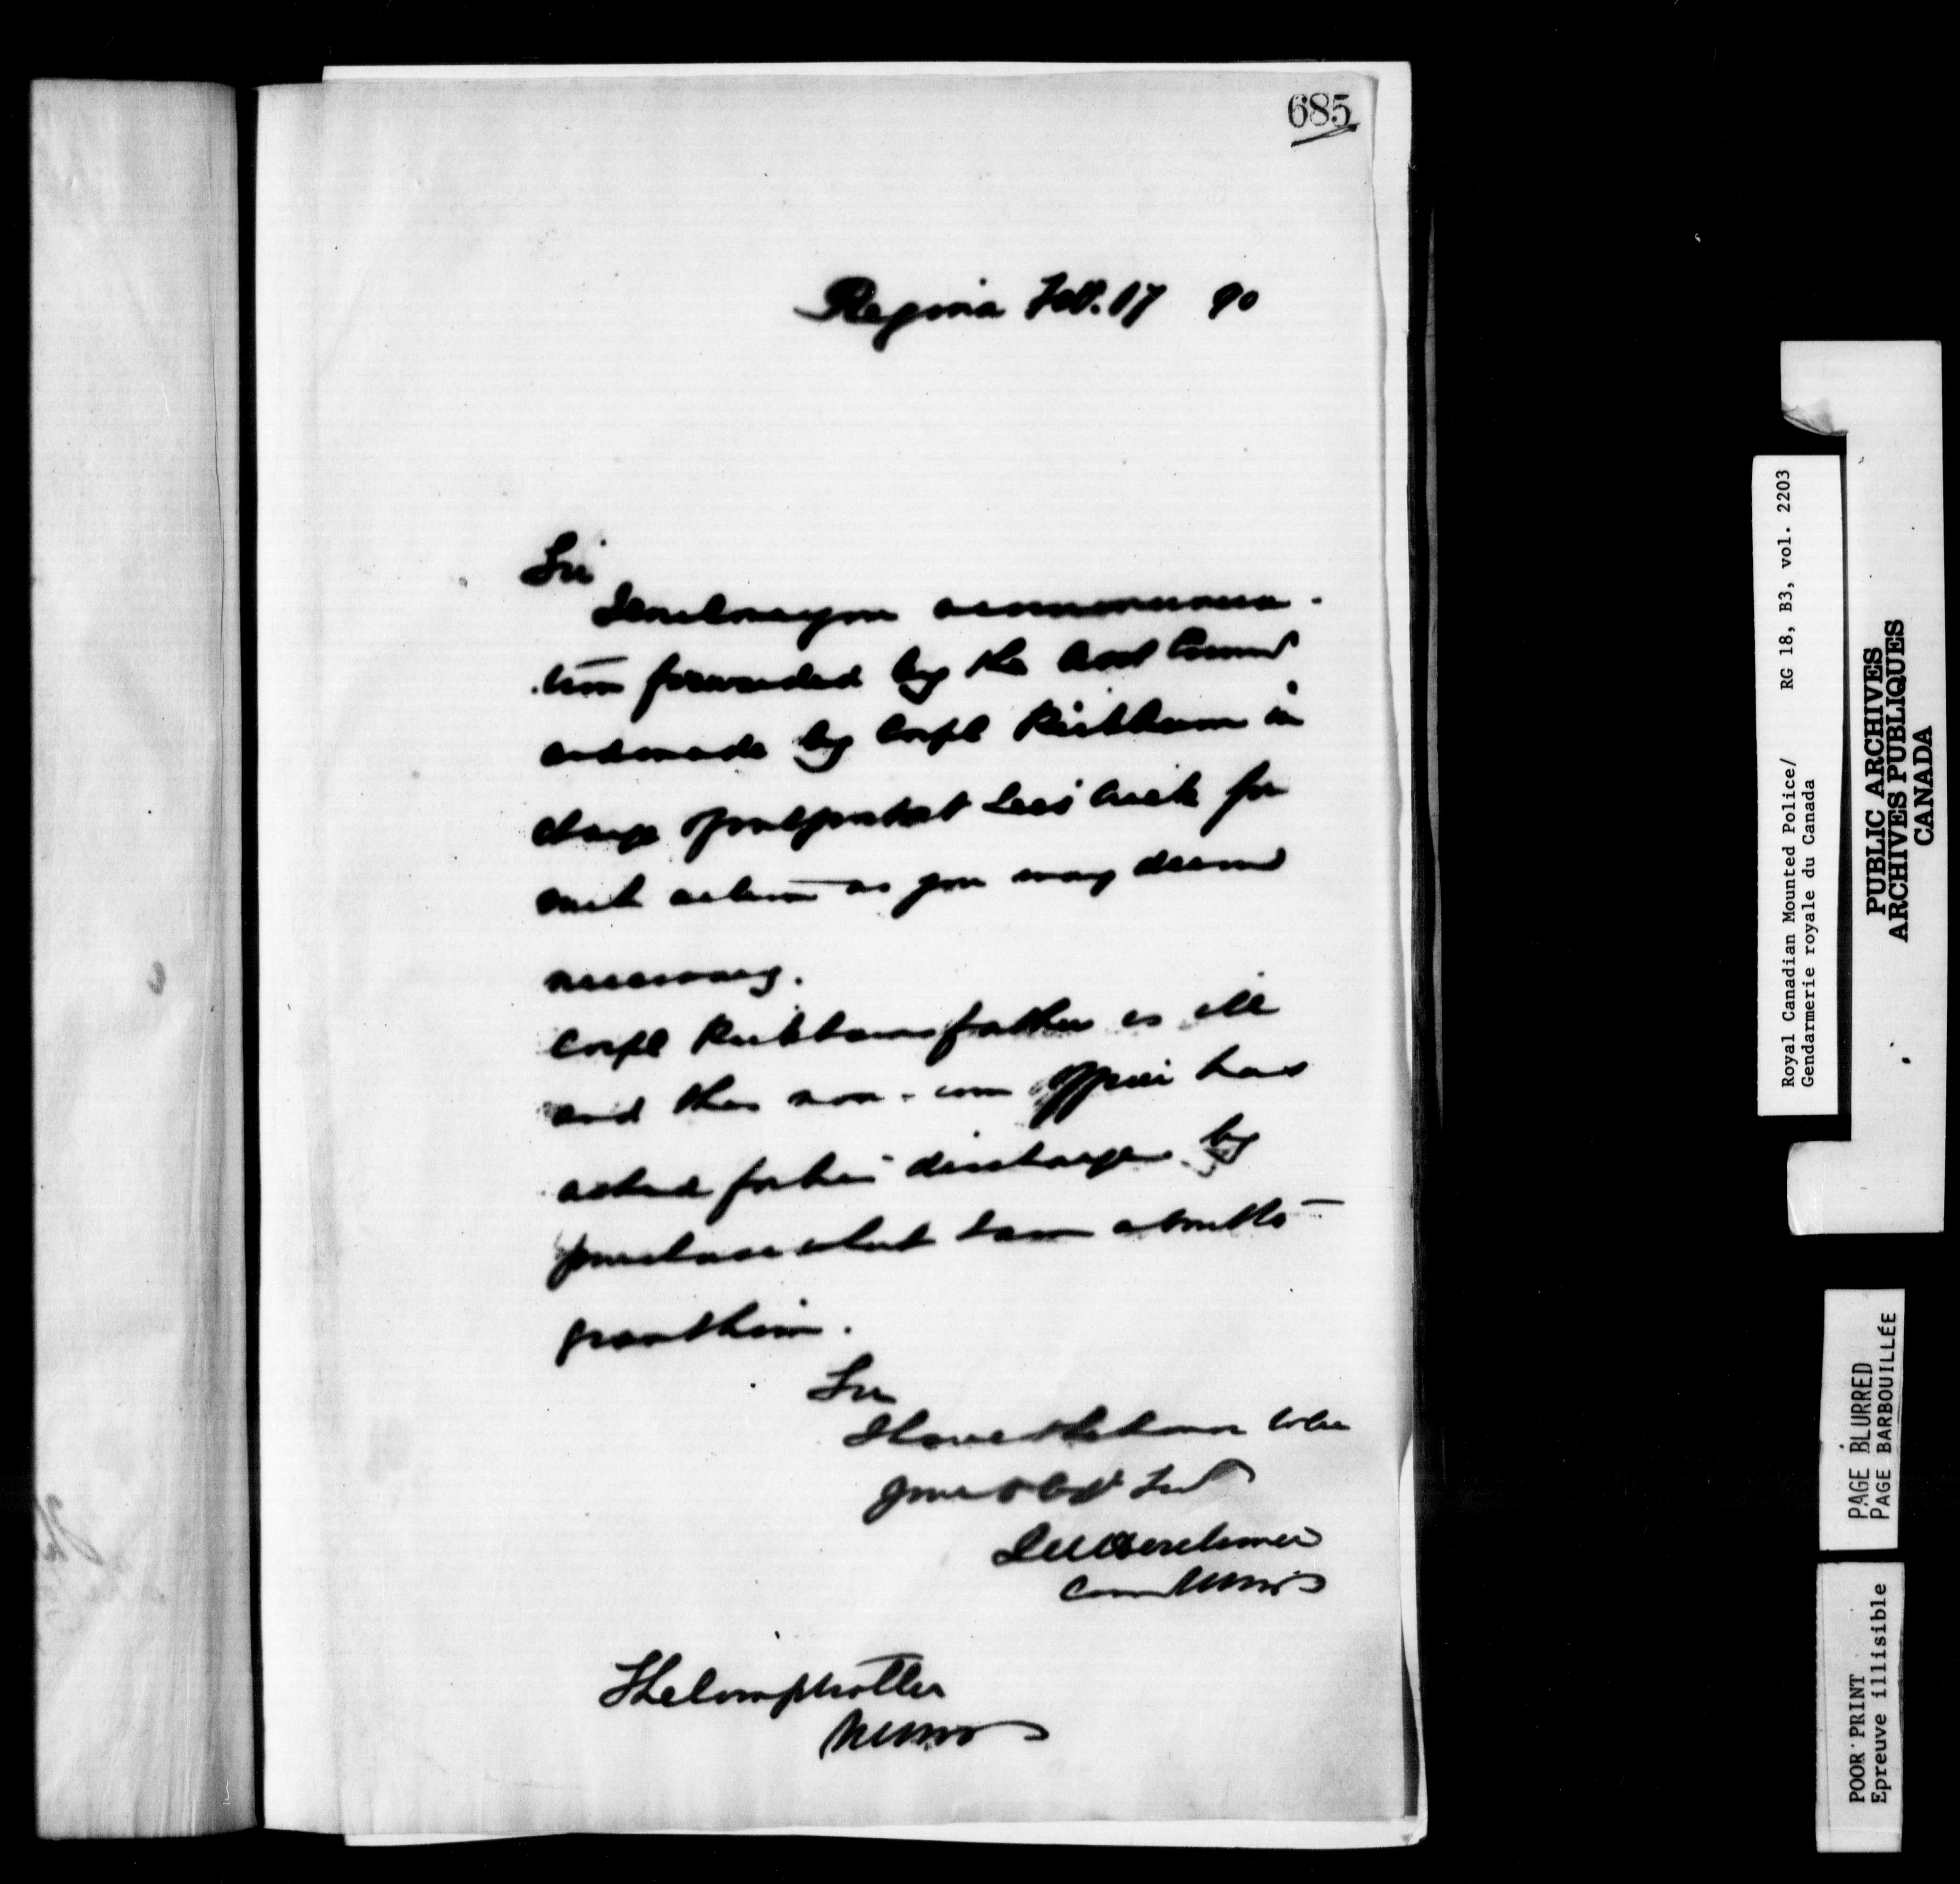 685
Regina Feb. 17 90
Sir
I enclose you a communica-
tion forwarded by the Asst Commr
and made by Corpl Kirkham in
charge of outpost at Lees Creek for
such action as you may deem
necessary.
Corpl Kirkhams father is ill
and this non-com officer has
asked for his discharge by
purchase which I am about to
grant him.
Sir
I have the honor to be
your Obdt Svt
LW Herchmer
Comr NWMP
The Comptroller
NWMP
Royal Canadian Mounted Police/ RG 18, B3, vol. 2203
Gendarmerie royale du Canada
PUBLIC ARCHIVES
ARCHIVES PUBLIQUES
CANADA
PAGE BLURRED
PAGE BARBOUILLÉE
POOR PRINT
Epreuve illisible